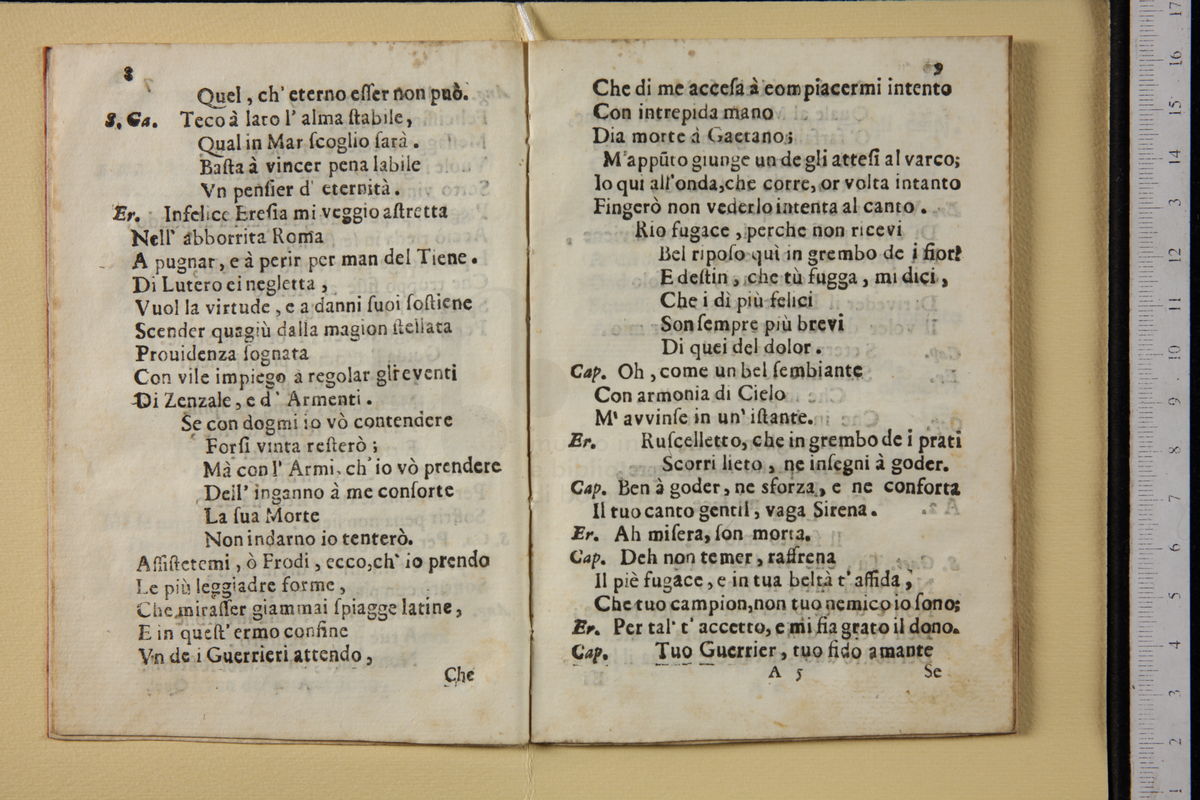 8
Quel, ch' eterno eſſer non può.
S. Ga. Teco à lato l' alma ſtabile,
Qual in Mar ſcoglio ſarà.
Baſta à vincer pena labile
Vn penſier d' eternità.
Er. Infelice Ereſia mi veggio aſtretta
Nell' abborrita Roma
A pugnar, e à perir per man del Tiene.
Di Lutero ei negletta,
Vuol la virtude, e a danni ſuoi ſoſtiene
Scender quagiù dalla magion ſtellata
Prouidenza ſognata
Con vile impiego a regolar gli eventi
Di Zenzale, e d' Armenti.
Se con dogmi io vò contendere
Forſi vinta reſterò;
Mà con l' Armi, ch' io vò prendere
Dell' inganno à me conſorte
La ſua Morte
Non indarno io tenterò.
Aſſiſtetemi, ò Frodi, ecco, ch' io prendo
Le più leggiadre forme,
Che miraſſer giammai ſpiagge latine,
E in queſt' ermo confine
Vn de i Guerrieri attendo,
Che
9
Che di me acceſa à compiacermi intento
Con intrepida mano
Dia morte à Gaetano;
M'appũto giunge un de gli atteſi al varco;
Io qui all'onda, che corre, or volta intanto
Fingerò non vederlo intenta al canto.
Rio fugace, perche non ricevi
Bel ripoſo quì in grembo de i fiori?
E deſtin, che tù fugga, mi dici,
Che i dì più felici
Son ſempre più brevi
Di quei del dolor.
Cap. Oh, come un bel ſembiante
Con armonia di Cielo
M' avvinſe in un' iſtante.
Er. Ruſcelletto, che in grembo de i prati
Scorri lieto, ne inſegni à goder.
Cap. Ben à goder, ne sforza, e ne conforta
Il tuo canto gentil, vaga Sirena.
Er. Ah miſera, ſon morta.
Cap. Deh non temer, raffrena
Il piè fugace, e in tua beltà t' affida,
Che tuo campion, non tuo nemico io ſono;
Er. Per tal' t' accetto, e mi ſia grato il dono.
Cap. Tuo Guerrier, tuo fido amante
A 5
Se
1 2 3 4 5 6 7 8 9 10 11 12 3 14 15 16 17